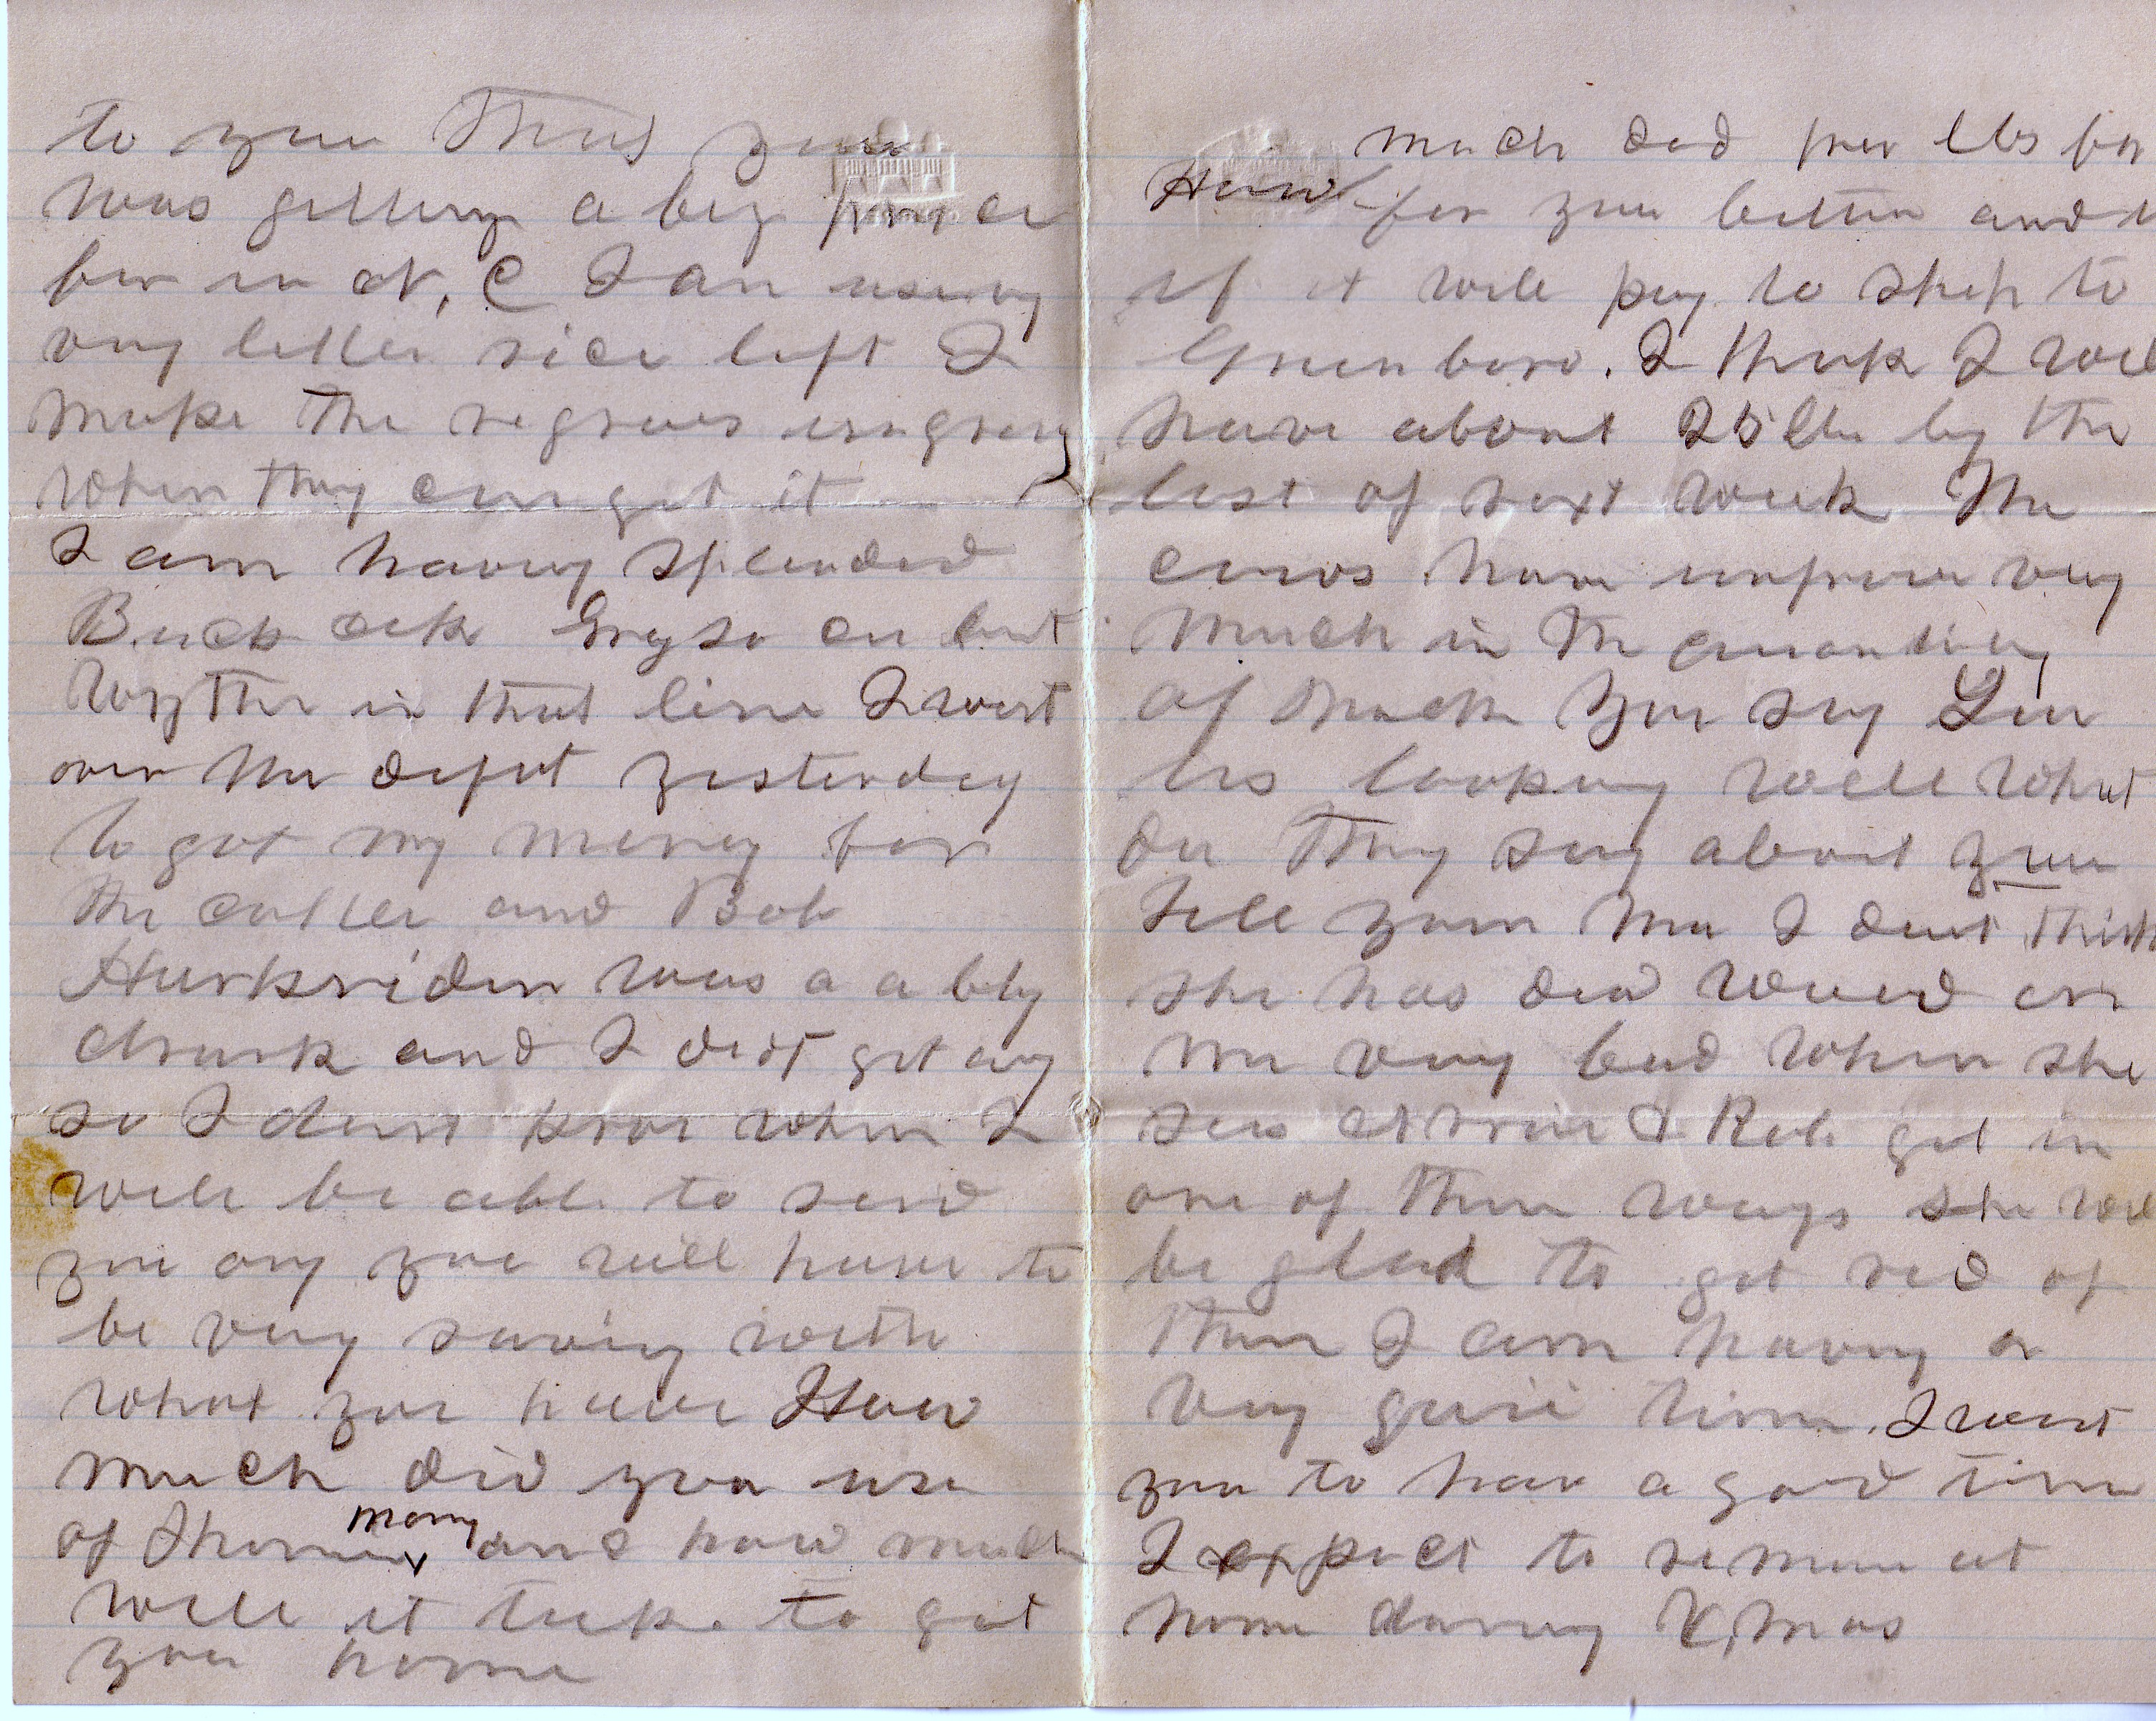 to you That you
was getting a big price
for in N, C I am using
very little rice left I
make the negroes
when they can get it
I am having splended
Buck
in that line I went
over the depot yesterday
to get my money for
the cattle and Bob
was a
drunk and I didt get any
so I dont know when I
will be able to send
you any you will have to
be very saving with
what you have How
much did you use
of money and how much
will it take to get
you home
How much did per lbs
for you butter and
if it will pay to ship to
Greensboro. I think I will
have about 25 lbs by the
last of next week The
cows have improve very
much in the quantity
of You say
is looking well What
do They say about you
Tell your Ma I dont think
she has on
me very bad when she
sees & Rob get in
one of there ways she will
be glad to get red of
them I am having a
very time. I want
you to hav a good time
I expect to at
home during Xmas